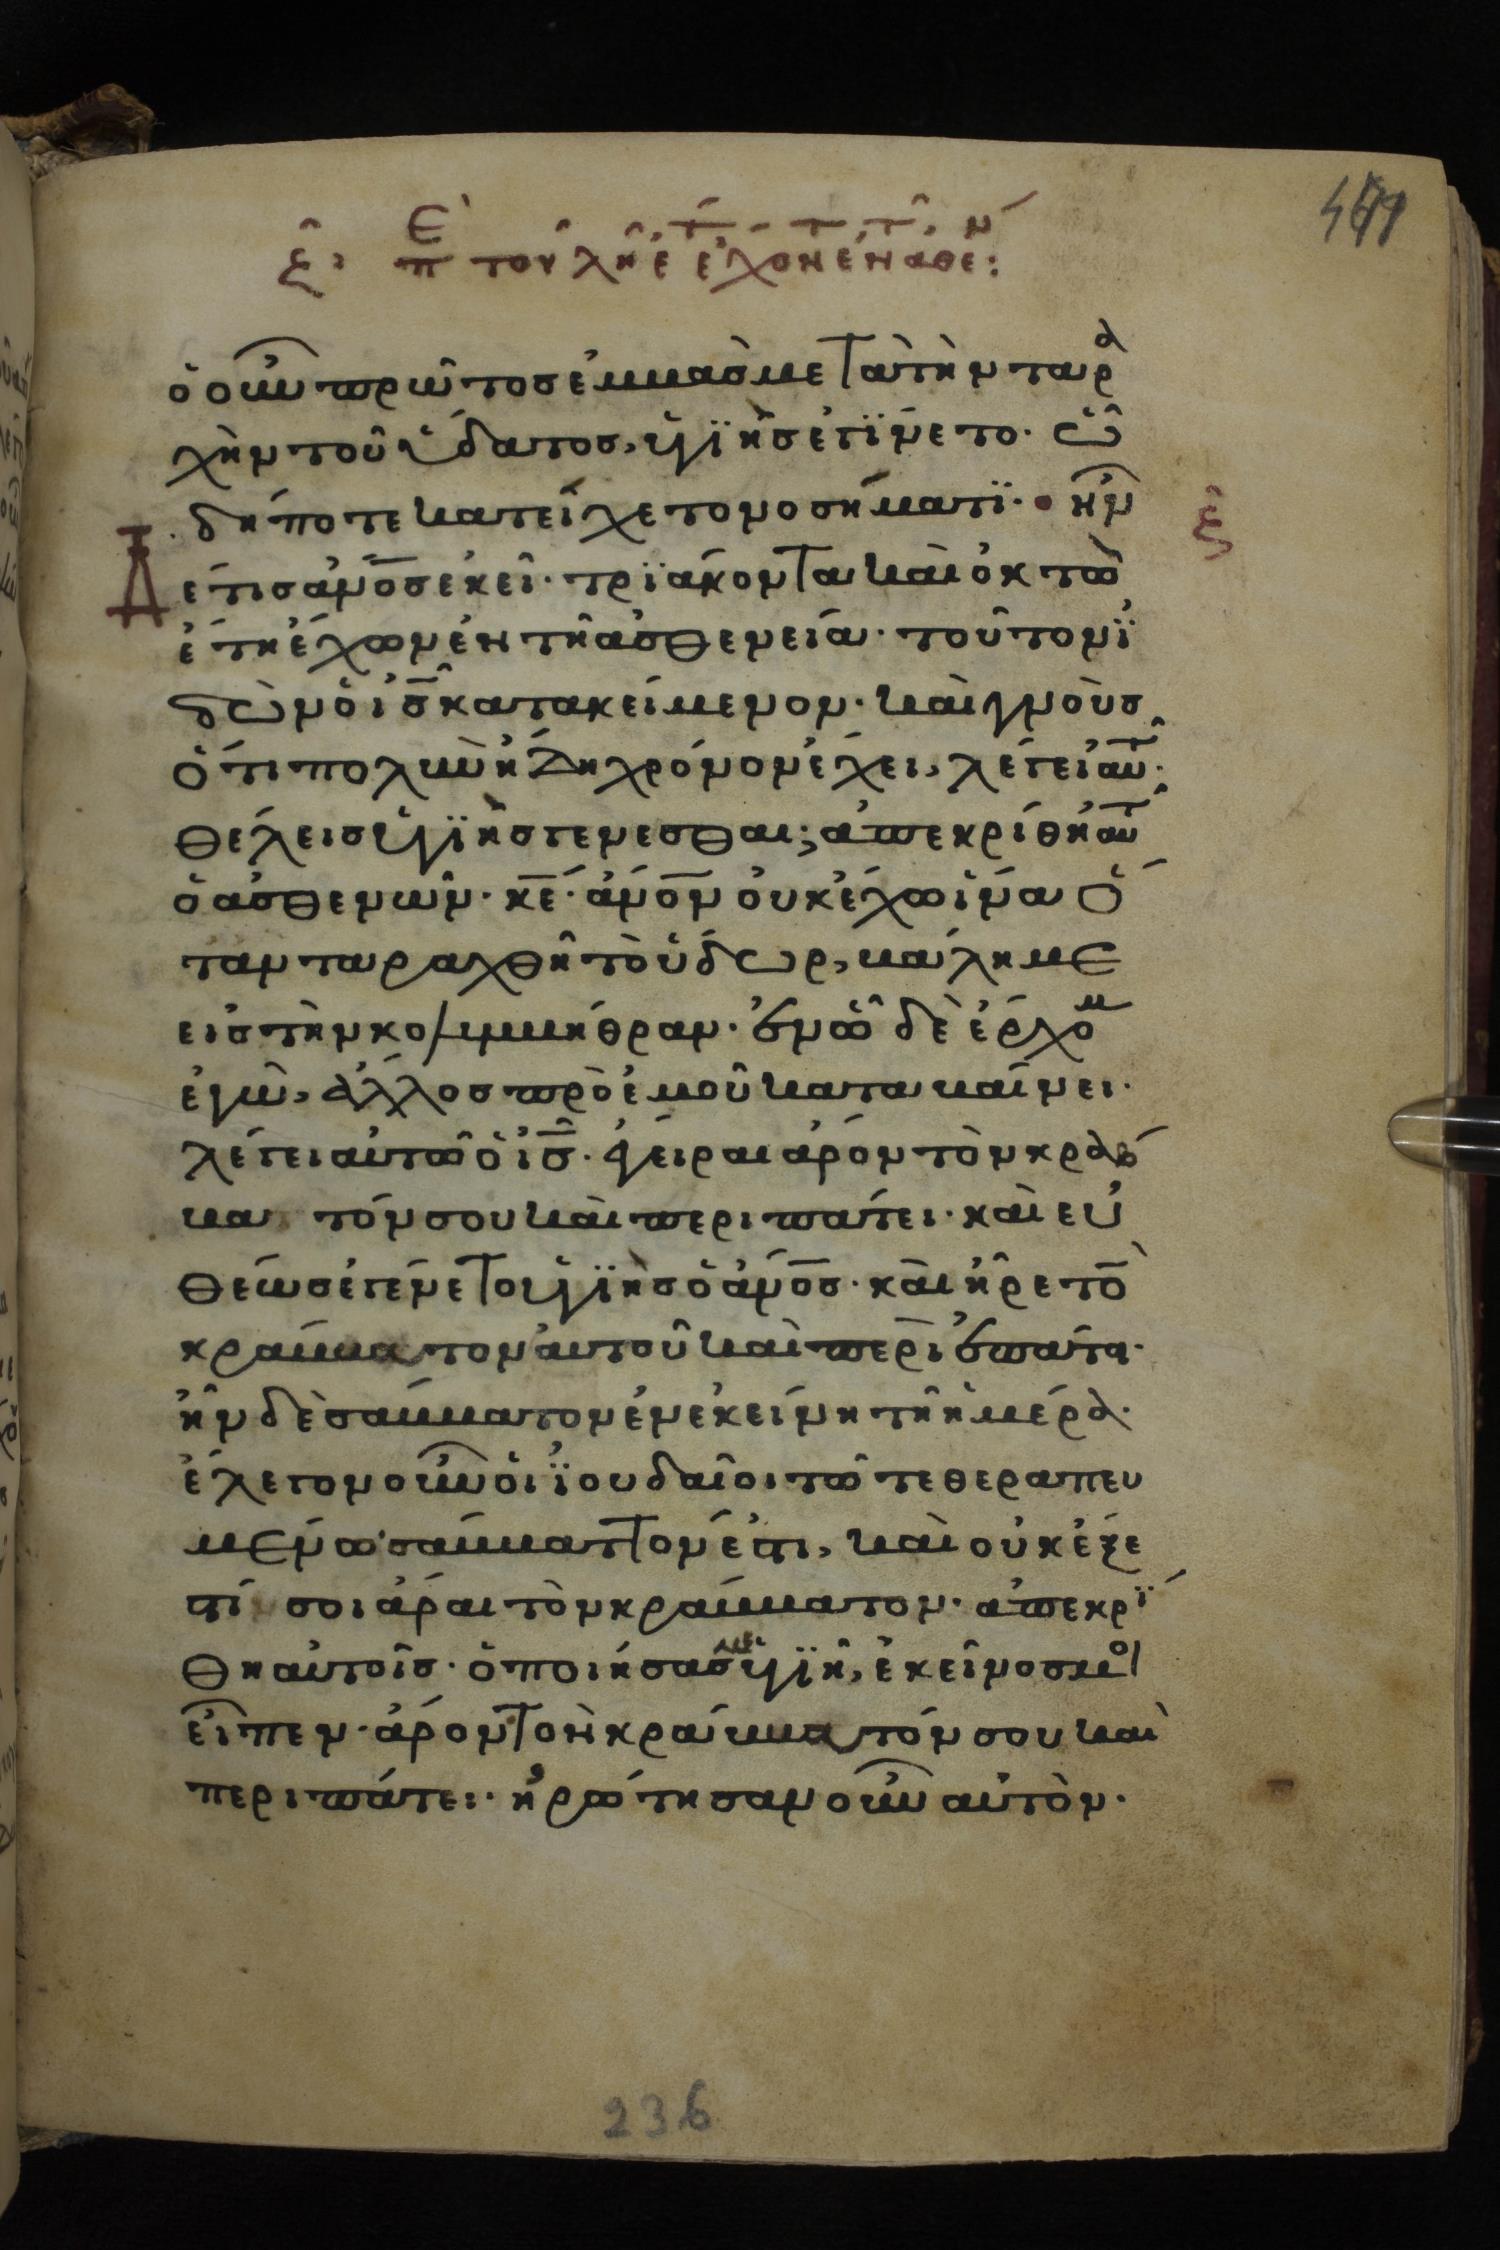 ὁ οὖν πρῶτος ἐμβὰς μετὰ τὴν ταρα
χὴν τοῦ ὕδατος, ὑγϊὴς ἐγΐνετο· ὧ
δήποτε κατείχετο νοσήματϊ· ἦν
δέ τις ἄν̅ο̅ς̅ ἐκεῖ· τρϊάκοντα καὶ ὀκτὼ
ἔτη ἔχων ἐν τῆ ἀσθενεία· τοῦτον ἰ
δὼν ὁ ι̅ς̅ κατακείμενον· καὶ γνοὺς
ὅτι πολὺν ἤδη χρόνον ἔχει, λέγει αὐτ·
θέλεις ὑγϊὴς γενεσθαι; ἀπεκρίθη αὐτ
ὁ ἀσθενῶν· κ̅ε̅· ἄν̅ο̅ν̅ οὐκ ἔχω ἵνα ὅ
ταν ταραχθῆ τὸ ὕδωρ, βάλη με
εἰς τὴν κολυμβήθραν· ἐν ὧ δὲ ἔρχομ
ἐγὼ, ἄλλος πρὸ ἐμοῦ καταβαίνει·
λέγει αὐτῶ ὁ ι̅ς̅· ἔγειραι ἄρον τὸν κράβ
βα τόν σου καὶ περιπάτει· καὶ εὐ
θέως ἐγένετο ὑγϊὴς ὁ ἄν̅ο̅ς̅· καὶ ἦρε τὸ
κράββατον αὐτοῦ καὶ περὶ ἐπάτει·
ἦν δὲ σάββατον ἐν ἐκείνη τῆ ἡμέρα·
ἔλεγον οὖν οἱ ἰουδαῖοι τῶ τεθεραπευ
μένω· σάββατον ἐστι, καὶ οὐκ ἔξε
στί σοι ἆραι τὸν κράββατον· ἀπεκρΐ
θη αὐτοῖς· ὁ ποιήσας με ὑγϊῆ, ἐκεῖνος μοὶ
εἶπεν· ἆρον τὸν κράββατόν σου καὶ
περιπάτει· ἠρώτησαν οὖν αὐτὸν·
236